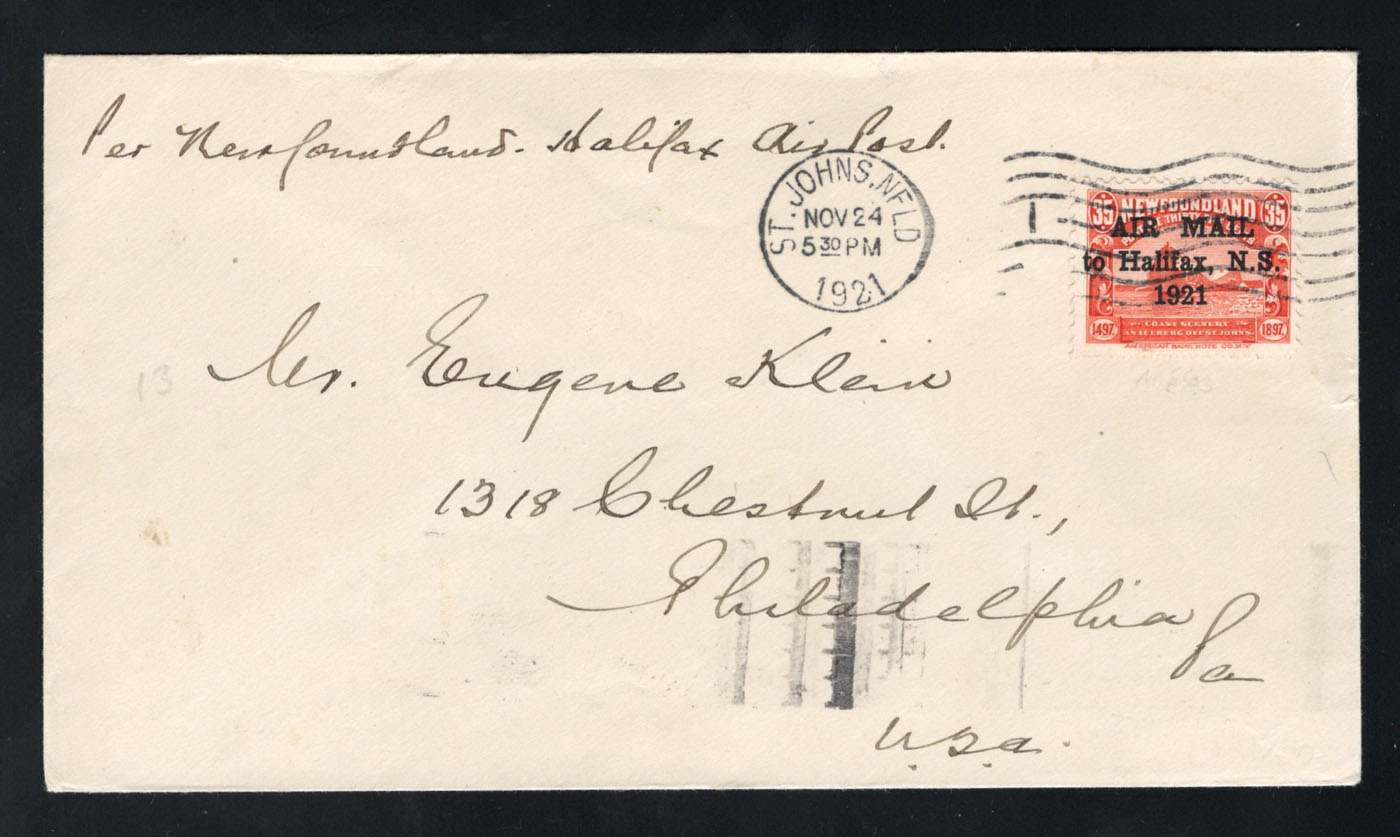 Per Newfoundland-Halifax Air Post.
ST. JOHNS, NFLD
NOV 24
5 30 PM
1921
35 NEWFOUNDLAND 35
AIR MAIL
to Halifax, N.S.
1921
COAST SCENERY
1497 AN ICEBERG OFF ST. JOHNS 1897
AMERICAN BANK NOTE CO. N.Y.
Mr. Eugene Klein
13
1318 Chestnut St.,
Philadelphia
Pa
U.S.A.